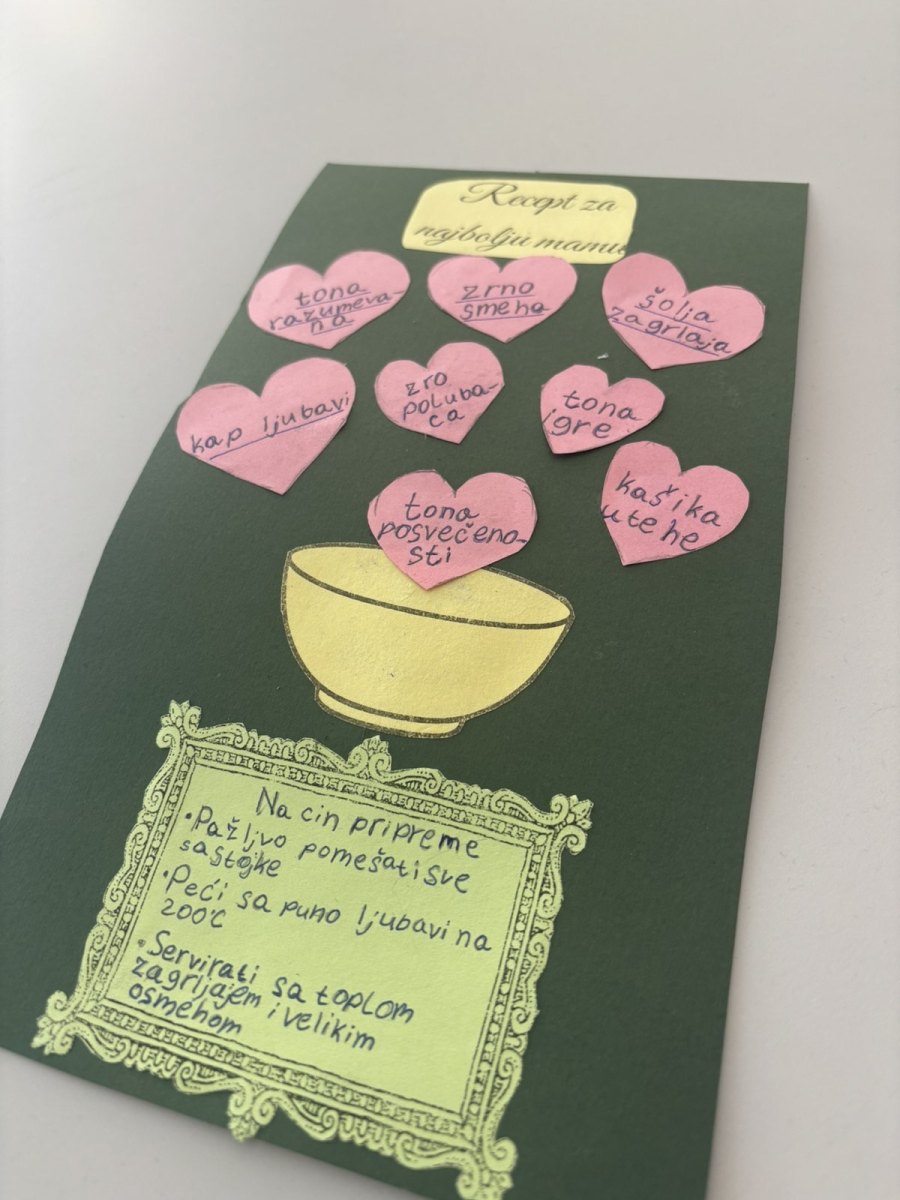 Recept za
najbolju mamu
tona
razumeva-
na
zrno
smeha
šolja
zagrlaja
kap ljubavi
zro
poluba-
ca
tona
igre
kašika
utehe
tona
posvečeno-
sti
Na cin pripreme
•Pažljvo pomešati sve
sastojke
•Peći sa puno ljubavi na
200°C
•Servirati sa toplom
zagrljajem i velikim
osmehom